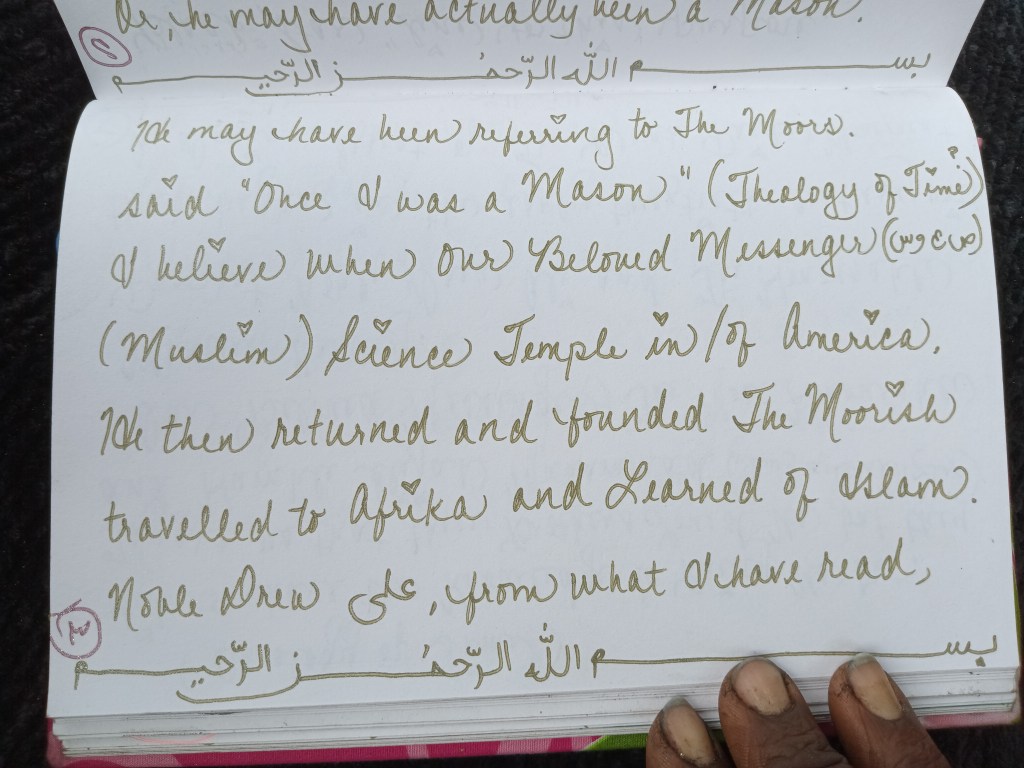 Or, he may have actually been a Mason.
٢
بســـم اللّٰه الرّحمٰـــن الرّحيـــم
He may have been referring to The Moors.
said "Once I was a Mason" (Theology of Time)
I believe when Our Beloved Messenger (ص ع و س)
(Muslim) Science Temple in/of America.
He then returned and founded The Moorish
travelled to Afrika and Learned of Islam.
Noble Drew علي, from what I have read,
٣
بســـم اللّٰه الرّحمٰـــن الرّحيـــم